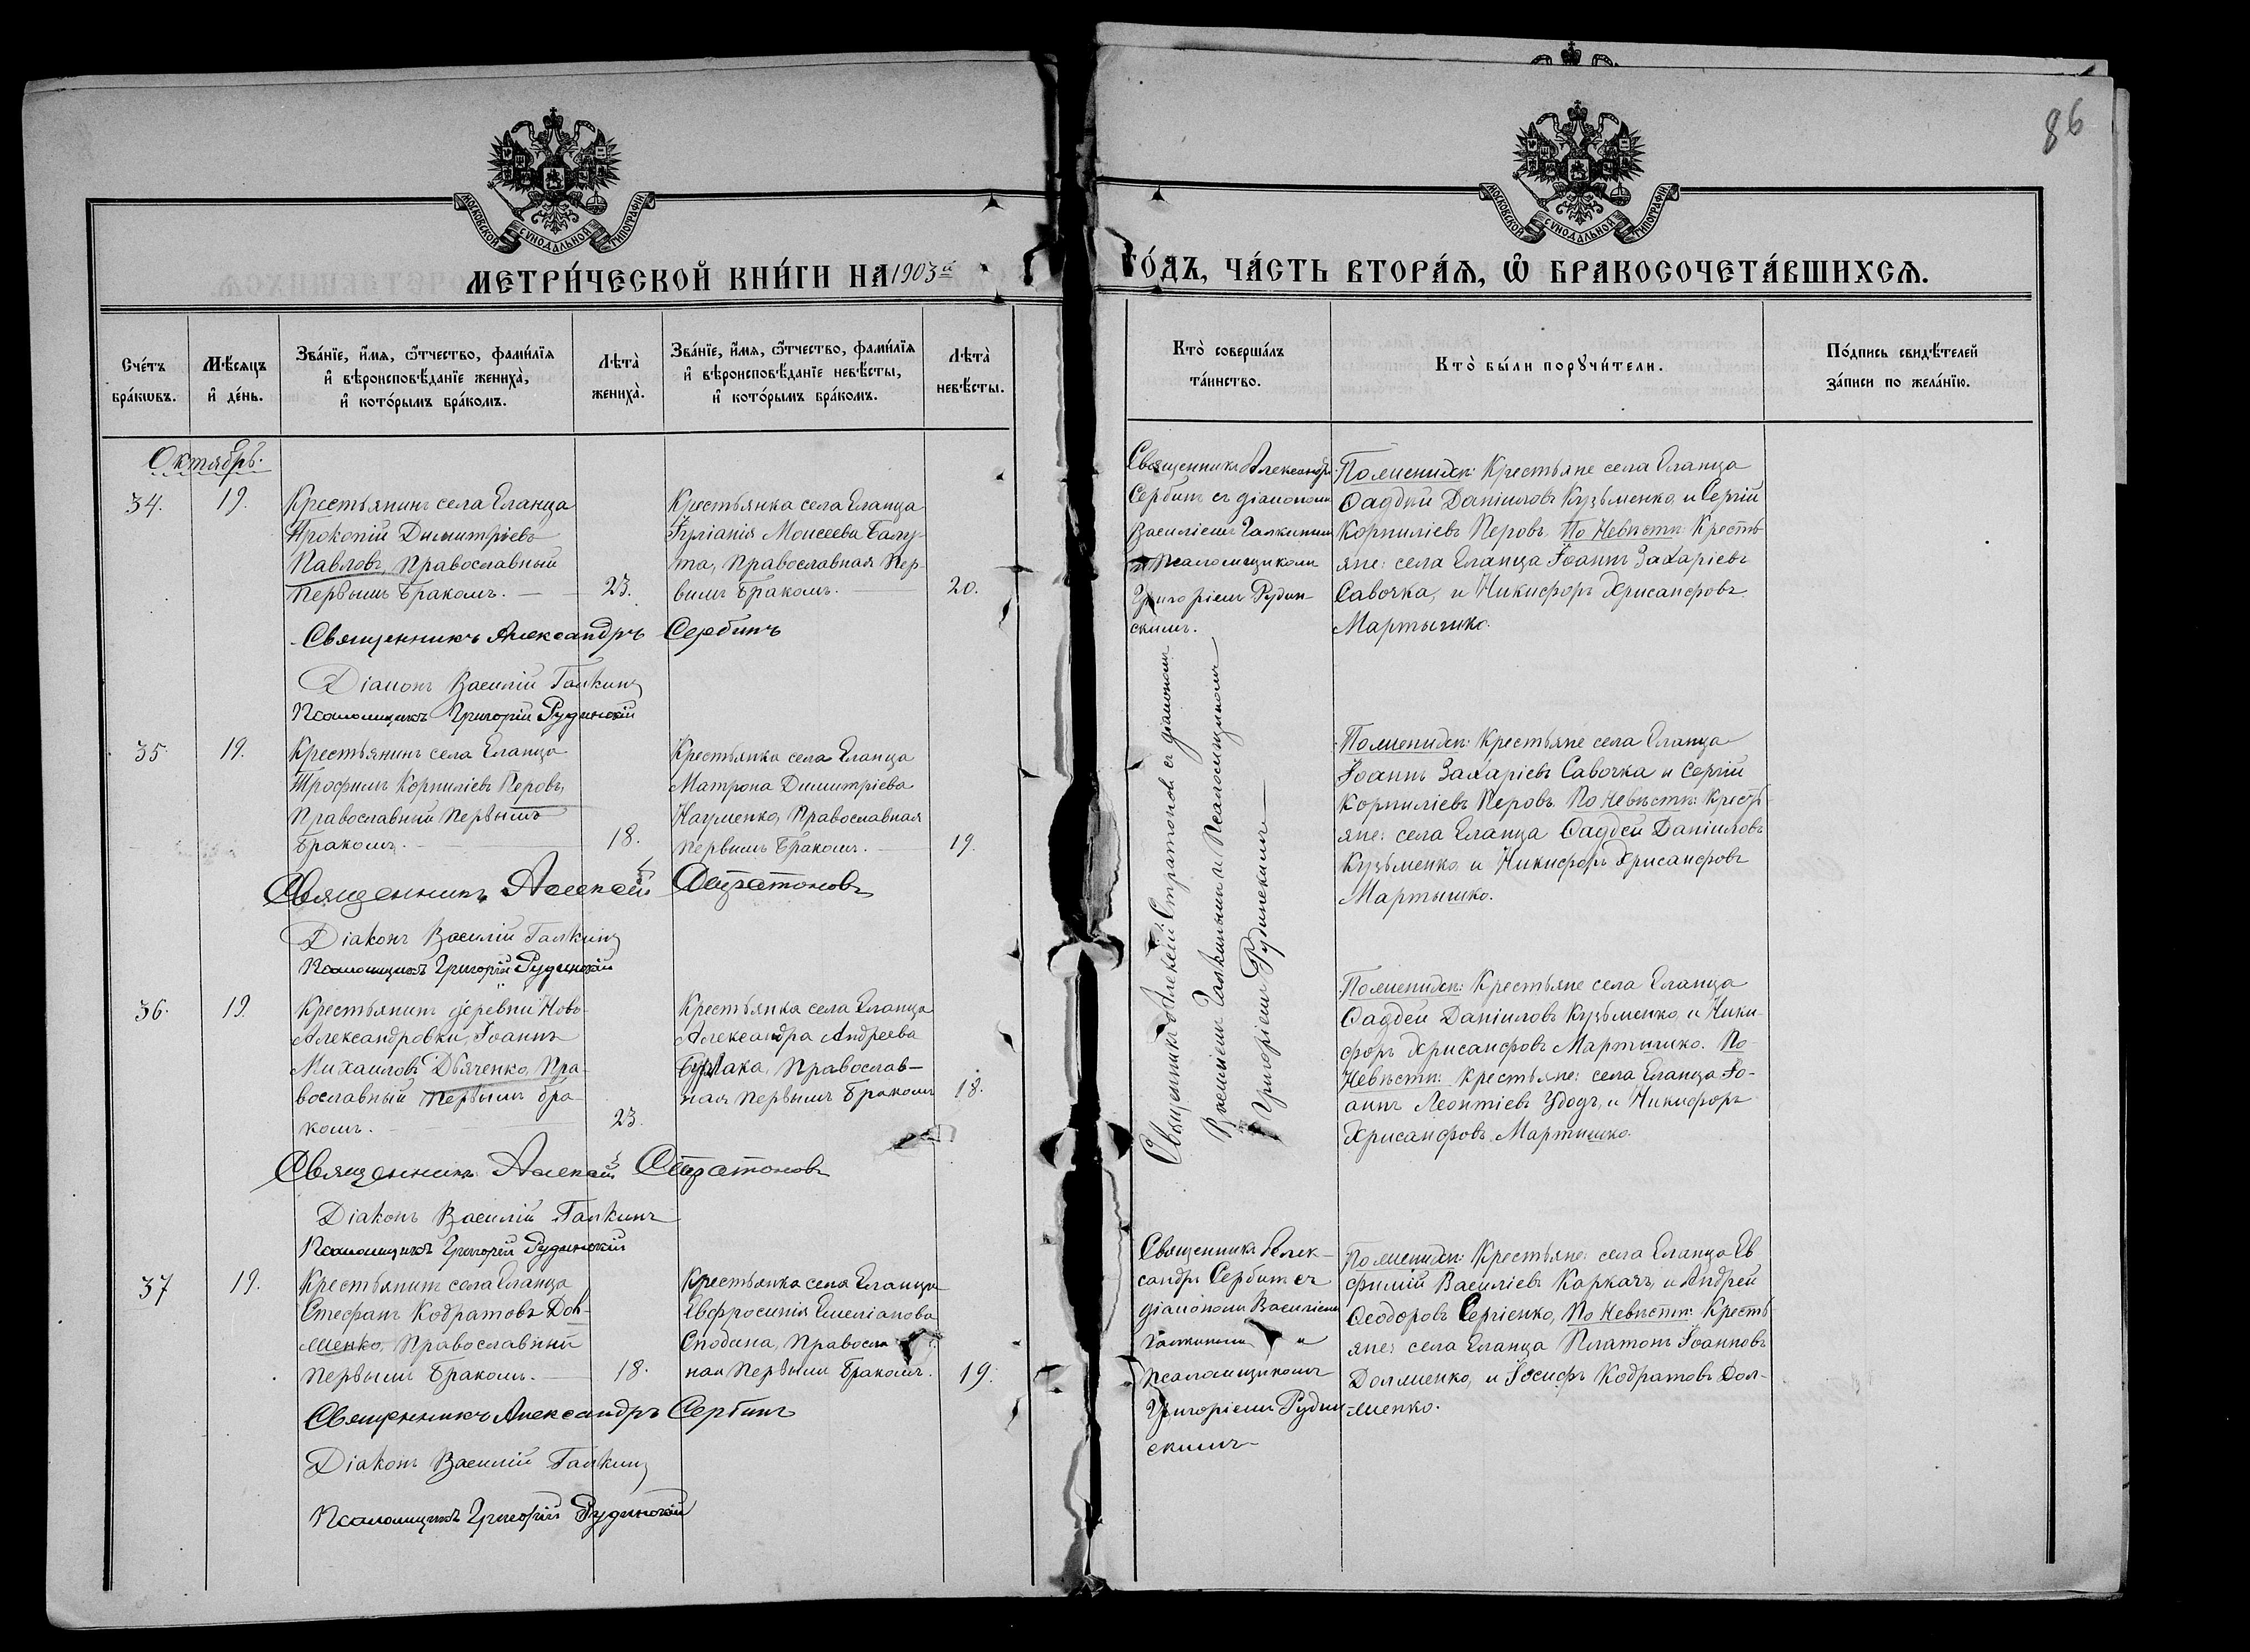 86
МОСКОВСКОЙ СѴНОДАЛЬНОЙ ТИПОГРАФІИ
МОСКОВСКОЙ СѴНОДАЛЬНОЙ ТИПОГРАФІИ
МЕТРИ́ЧЕСКОЙ КНИ́ГИ НА 1903й
ГО́ДЪ, ЧА́СТЬ ВТОРА́Ѧ, Ѽ БРАКОСОЧЕТА́ВШИХСѦ.
Сче́тъ
бра́кѡвъ.
Мѣ́сяцъ
и҆ де́нь.
Зва́нїе, и҆́мя, ѻ҆́тчество, фами́лїя
и҆ вѣроисповѣ́данїе жениха̀,
и҆ кото́рымъ бра́комъ.
Лѣта̀
жениха̀.
Зва́нїе, и҆́мя, ѻ҆́тчество, фами́лїя
и҆ вѣроисповѣ́данїе невѣ́сты,
и҆ кото́рымъ бра́комъ.
Лѣта̀
невѣ́сты.
Кто̀ соверша́лъ
та́инство.
Кто̀ бы́ли порꙋчи́тели.
По́дпись свидѣ́телей
за́писи по жела́нїю.
Октябрь.
34.
19.
Крестьянинъ села Еланца
Прокопій Димитріевъ
Павловъ, Православный
Первымъ бракомъ.
23.
Крестьянка села Еланца
Іуліанія Моисеева Балу-
та, Православная Пер-
вымъ бракомъ.
20.
Священникъ Александръ
Сербинъ съ діакономъ
Василіемъ Галкинымъ
и Псаломщикомъ
Григоріемъ Рудин-
скимъ.
По женихѣ: Крестьяне села Еланца
Фаддей Даніиловъ Кузьменко, и Сергій
Корниліевъ Перовъ. По Невѣстѣ: Кресть-
яне: села Еланца Іоаннъ Захаріевъ
Савочка, и Никифоръ Хрисанфовъ
Мартышко.
Священникъ Александръ Сербинъ
Діаконъ Василій Галкинъ
Псаломщикъ Григорій Рудинскій
35.
19.
Крестьянинъ села Еланца
Трофимъ Корниліевъ Перовъ,
Православный Первымъ
бракомъ.
18.
Крестьянка села Еланца
Матрона Димитріева
Науменко, Православная
первымъ бракомъ.
19.
Священникъ Алексій Стратоновъ съ діакономъ
Василіемъ Галкинымъ и Псаломщикомъ
Григоріемъ Рудинскимъ
По женихѣ: Крестьяне села Еланца
Іоаннъ Захаріевъ Савочка и Сергій
Корниліевъ Перовъ. По Невѣстѣ: Кресть-
яне: села Еланца Фаддей Даніиловъ
Кузьменко, и Никифоръ Хрисанфовъ
Мартышко.
Священникъ Алексій Стратоновъ
Діаконъ Василій Галкинъ
Псаломщикъ Григорій Рудинскій
36.
19.
Крестьянинъ деревни Ново-
Александровки, Іоаннъ
Михаиловъ Дьяченко, Пра-
вославный первымъ бра-
комъ.
23.
Крестьянка села Еланца
Александра Андреева
Православ-
ная первымъ бракомъ
18.
По женихѣ: Крестьяне села Еланца
Фаддей Даніиловъ Кузьменко, и Ники-
форъ Хрисанфовъ Мартышко. По
Невѣстѣ: Крестьяне: села Еланца Іо-
аннъ Леонтіевъ Удодъ, и Никифоръ
Хрисанфовъ Мартышко.
Священникъ Алексій Стратоновъ
Діаконъ Василій Галкинъ
Псаломщикъ Григорій Рудинскій
37
19.
Крестьянинъ села Еланца
Стефанъ Кодратовъ Дол-
менко, Православный
первымъ бракомъ.
18.
Крестьянка села Еланца
Евфросинія Емеліанова
Сподина, Правосла
ная Первымъ бракомъ.
19.
Священникъ Алек-
сандръ Сербинъ съ
діакономъ Василіемъ
Галкинымъ и
Псаломщикомъ
Григоріемъ Рудин-
скимъ
По женихѣ: Крестьяне: села Еланца Ев
фимій Василіевъ Каркачъ, и Андрей
Ѳеодоровъ Сергіенко, По Невѣстѣ: Кресть-
яне: села Еланца Платонъ Іоанновъ
Долменко, и Іосифъ Кодратовъ Дол-
менко.
Священникъ Александръ Сербинъ
Діаконъ Василій Галкинъ
Псаломщикъ Григорій Рудинскій